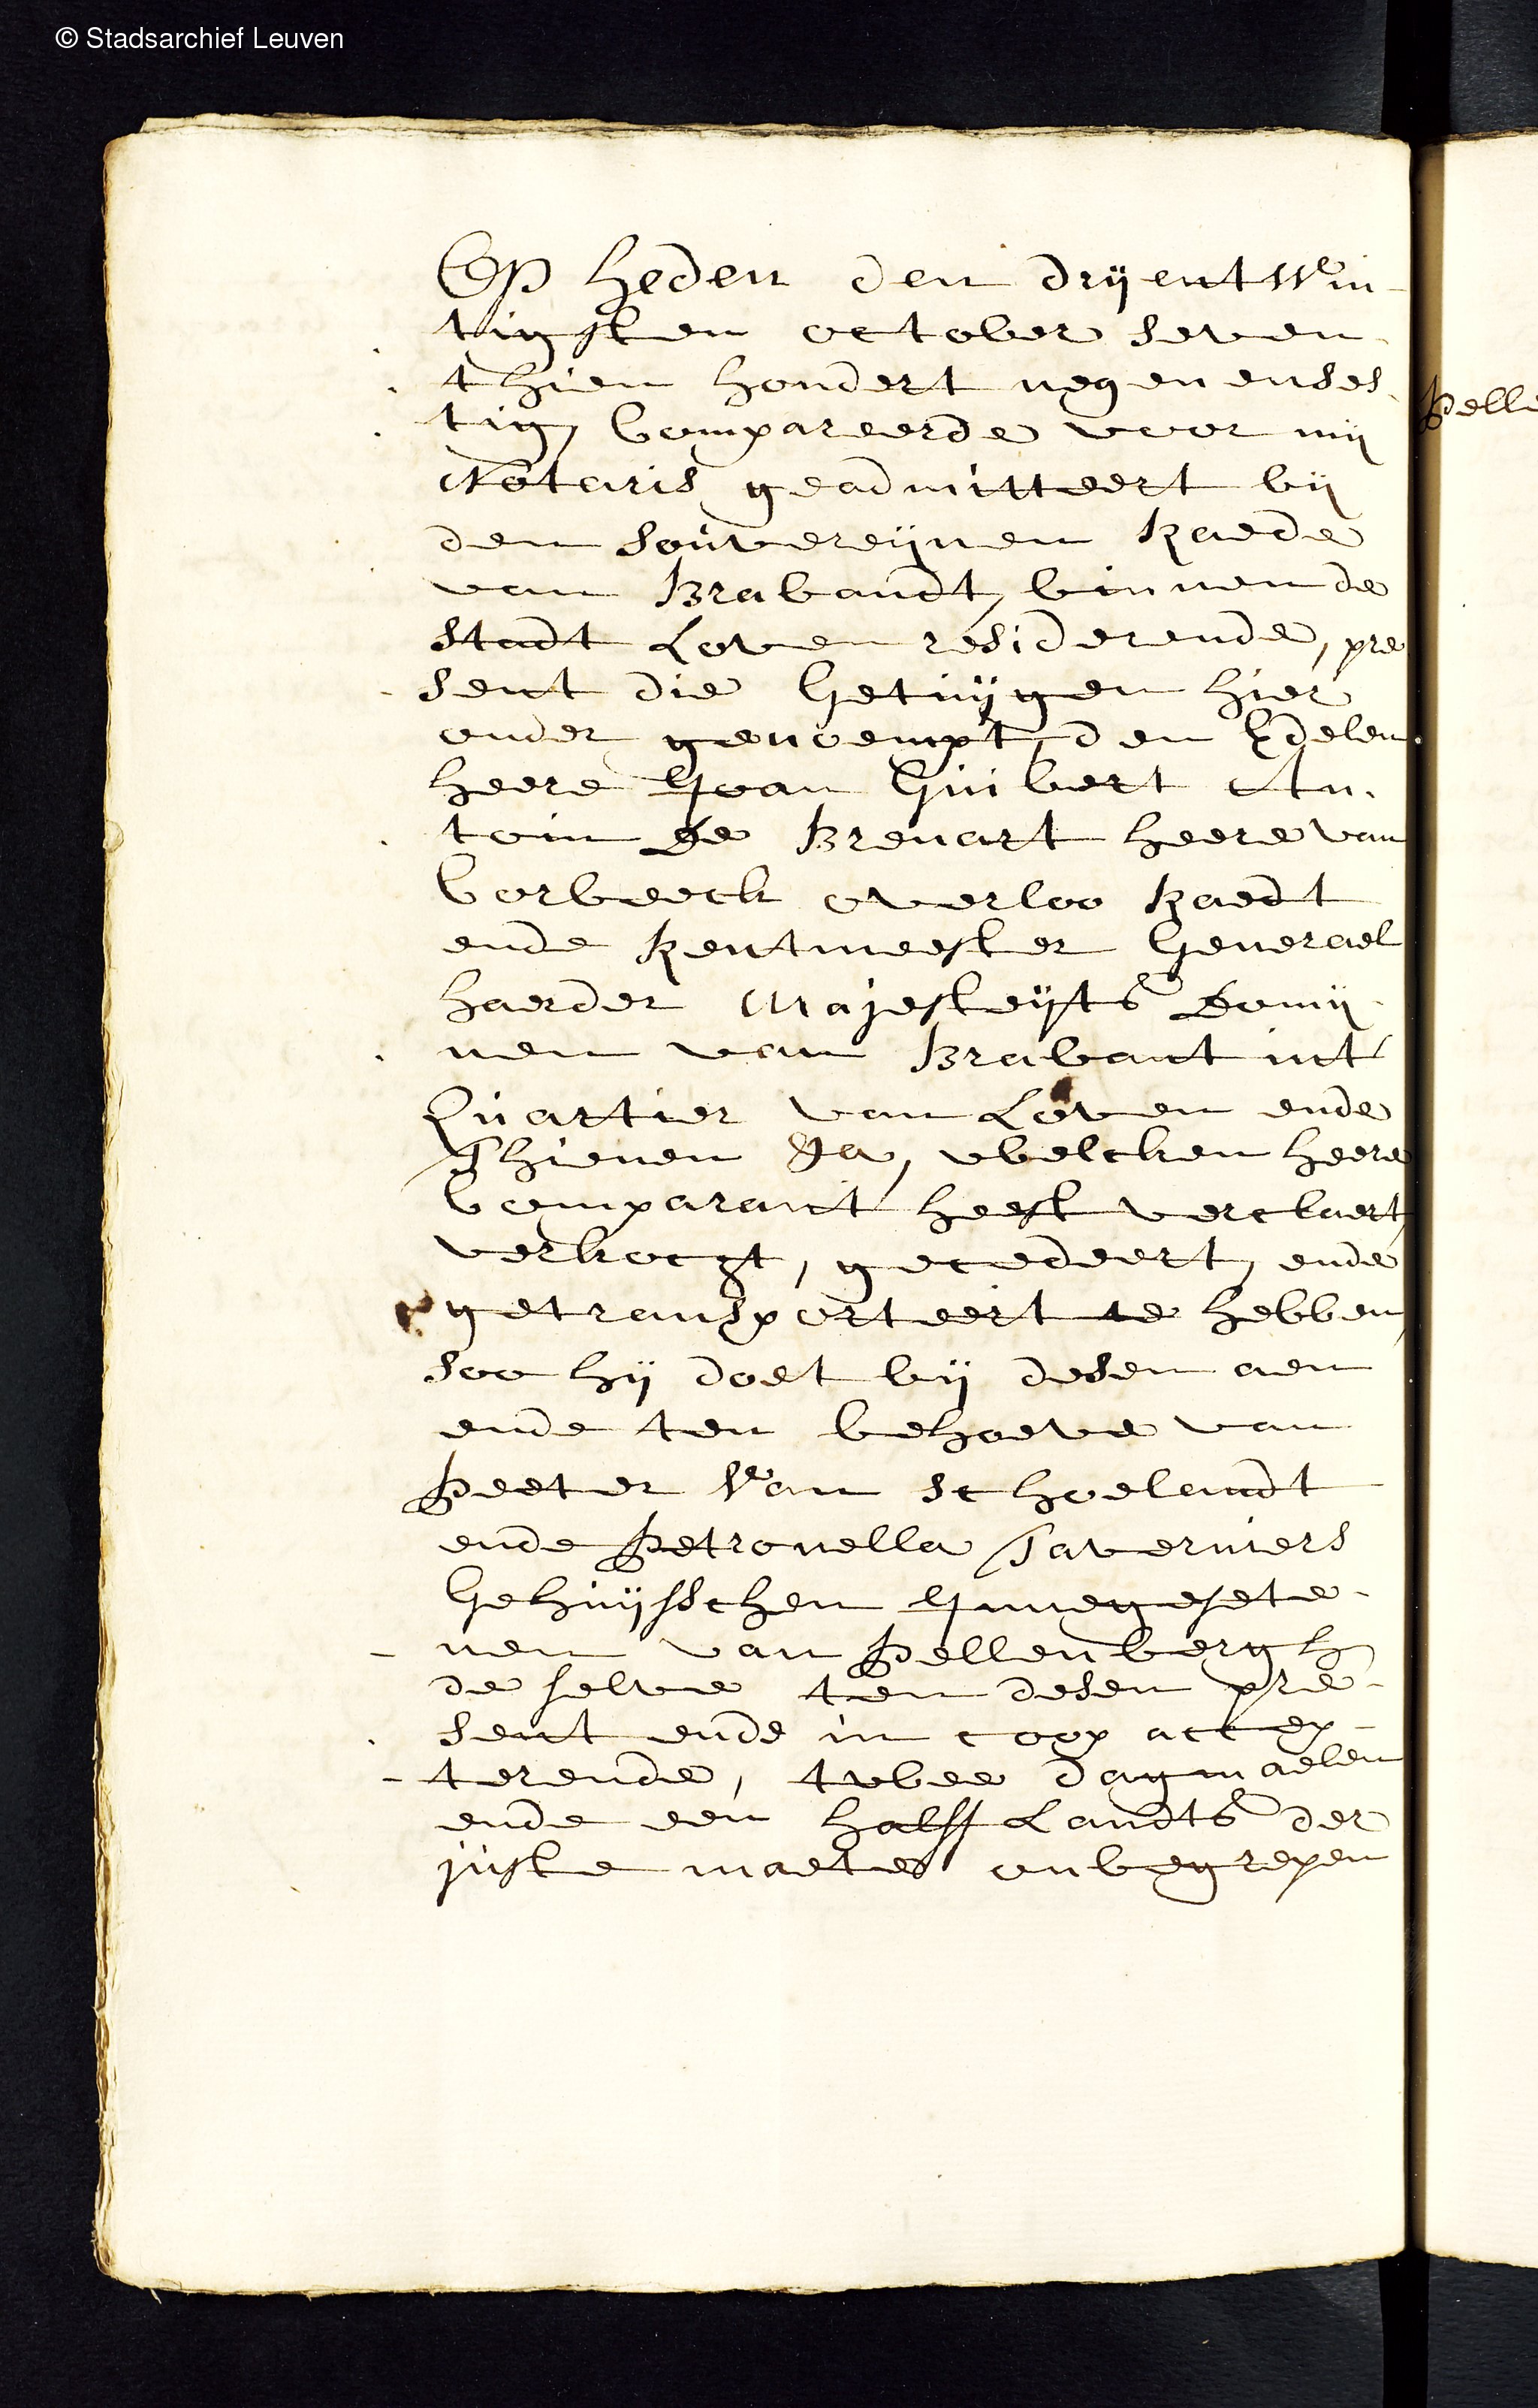 © Stadsarchief Leuven
Op heden den drijentwin-
tigsten october seven-
thien hondert negenenses-
tig, Compareerde voor mij
Notaris geadmitteert bij
den souvereijnen Raede
van Brabandt, binnen de
stadt Loven residerende, pre
sent die Getuijgen hier
onder genoempt, den Edelen
heere Joan Guibert An-
toin De Brenart heere van
Corbeeck overloo Raedt
ende Rentmeester Generael
haerder Majesteijts Domij-
nen van Brabant int
Quartier van Loven ende
Thienen &a, welcken heere
Comparant heeft verclaert
verkocht, gecedeert, ende
getransporteert te hebben,
soo hij doet bij desen aen
ende ten behoeve van
Peeter Van Schoelandt
ende Petronella Taverniers
Gehuijsschen Innegesete-
nen van Pellenbergh
de selve ten desen pre-
sent ende in coop accep-
terende, twee dagmaelen
ende een halff Landts der
juste maete onbegrepen
Pelle